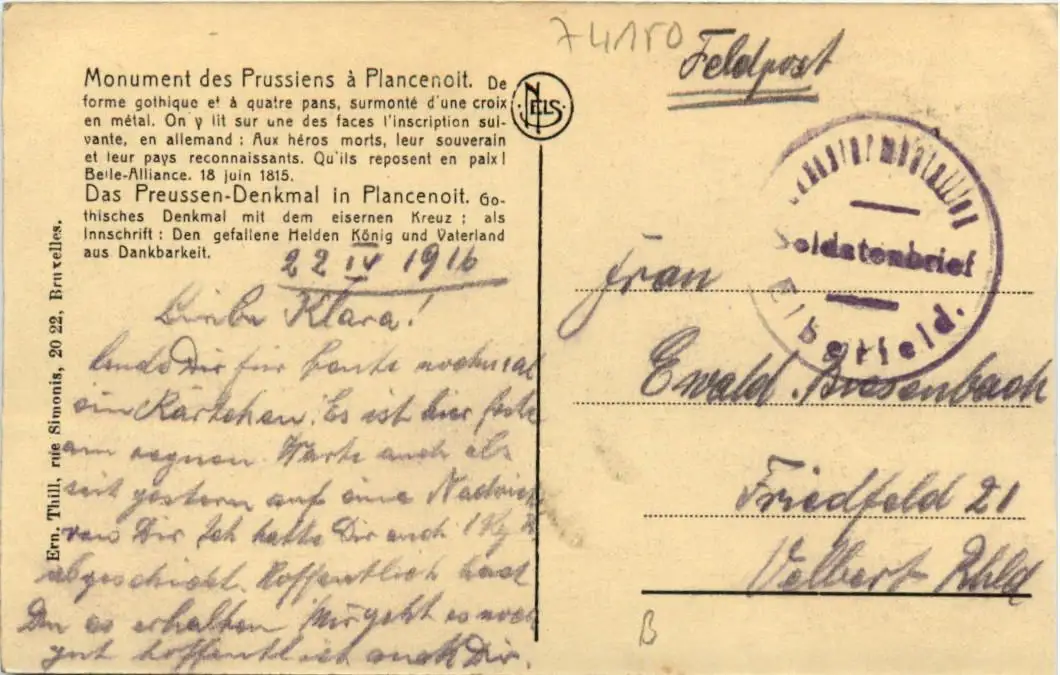 74150
Feldpost
Monument des Prussiens à Plancenoit. De
forme gothique et à quatre pans, surmonté d'une croix
en métal. On y lit sur une des faces l'inscription sui-
vante, en allemand : Aux héros morts, leur souverain
et leur pays reconnaissants. Qu'ils reposent en paix!
Belle-Alliance. 18 juin 1815.
Das Preussen-Denkmal in Plancenoit. Go-
thisches Denkmal mit dem eisernen Kreuz ; als
Innschrift : Den gefallene Helden König und Vaterland
aus Dankbarkeit.
NELS
Ern. Thill, rue Simonis, 20 22, Bruxelles.
22 IV 1916
Liebe Klara!
sende Dir für heute nochmal
ein Kärtchen. Es ist hier feste
am regnen. Warte auch als
seit gestern auf eine Nachricht
von Dir. Ich hatte Dir auch 1
abgeschickt. Hoffentlich hast
Du es erhalten Mir geht es noch
gut hoffentlich auch Dir.
Soldatenbrief
Elberfeld.
Frau
Ewald Biesenbach
Friedfeld 21
Velbert Rhld
B